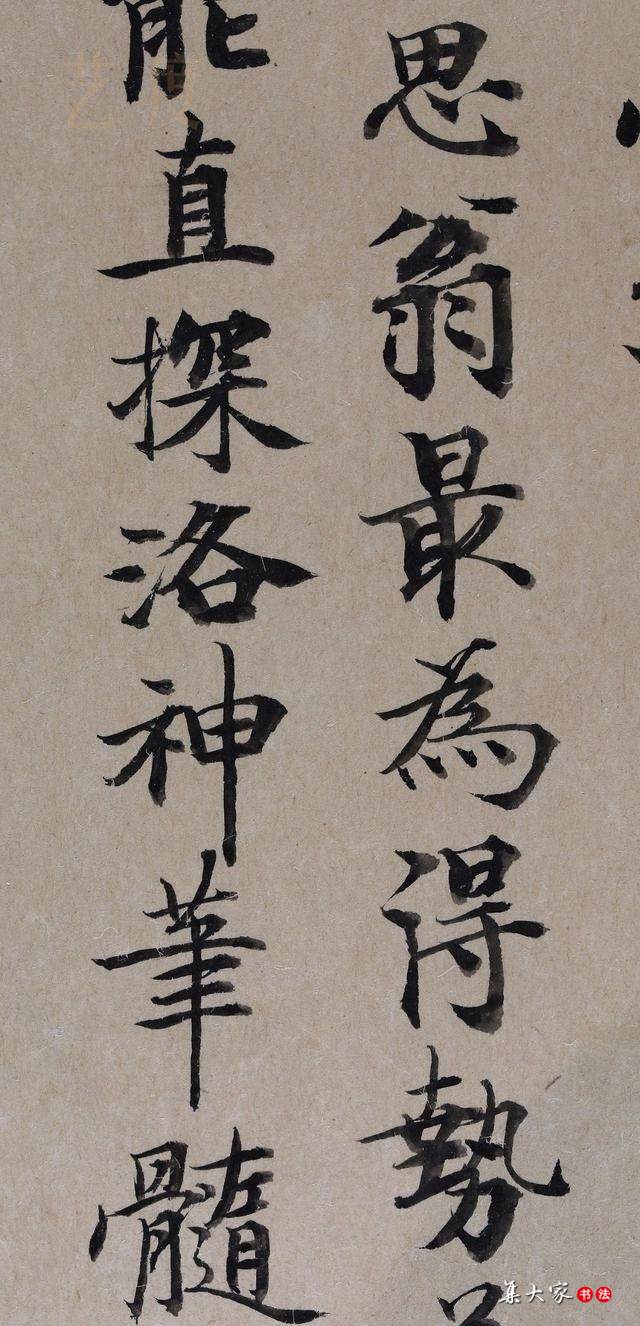 思翁最為得勢
能直探洛神筆髓
艺度
集大家书法